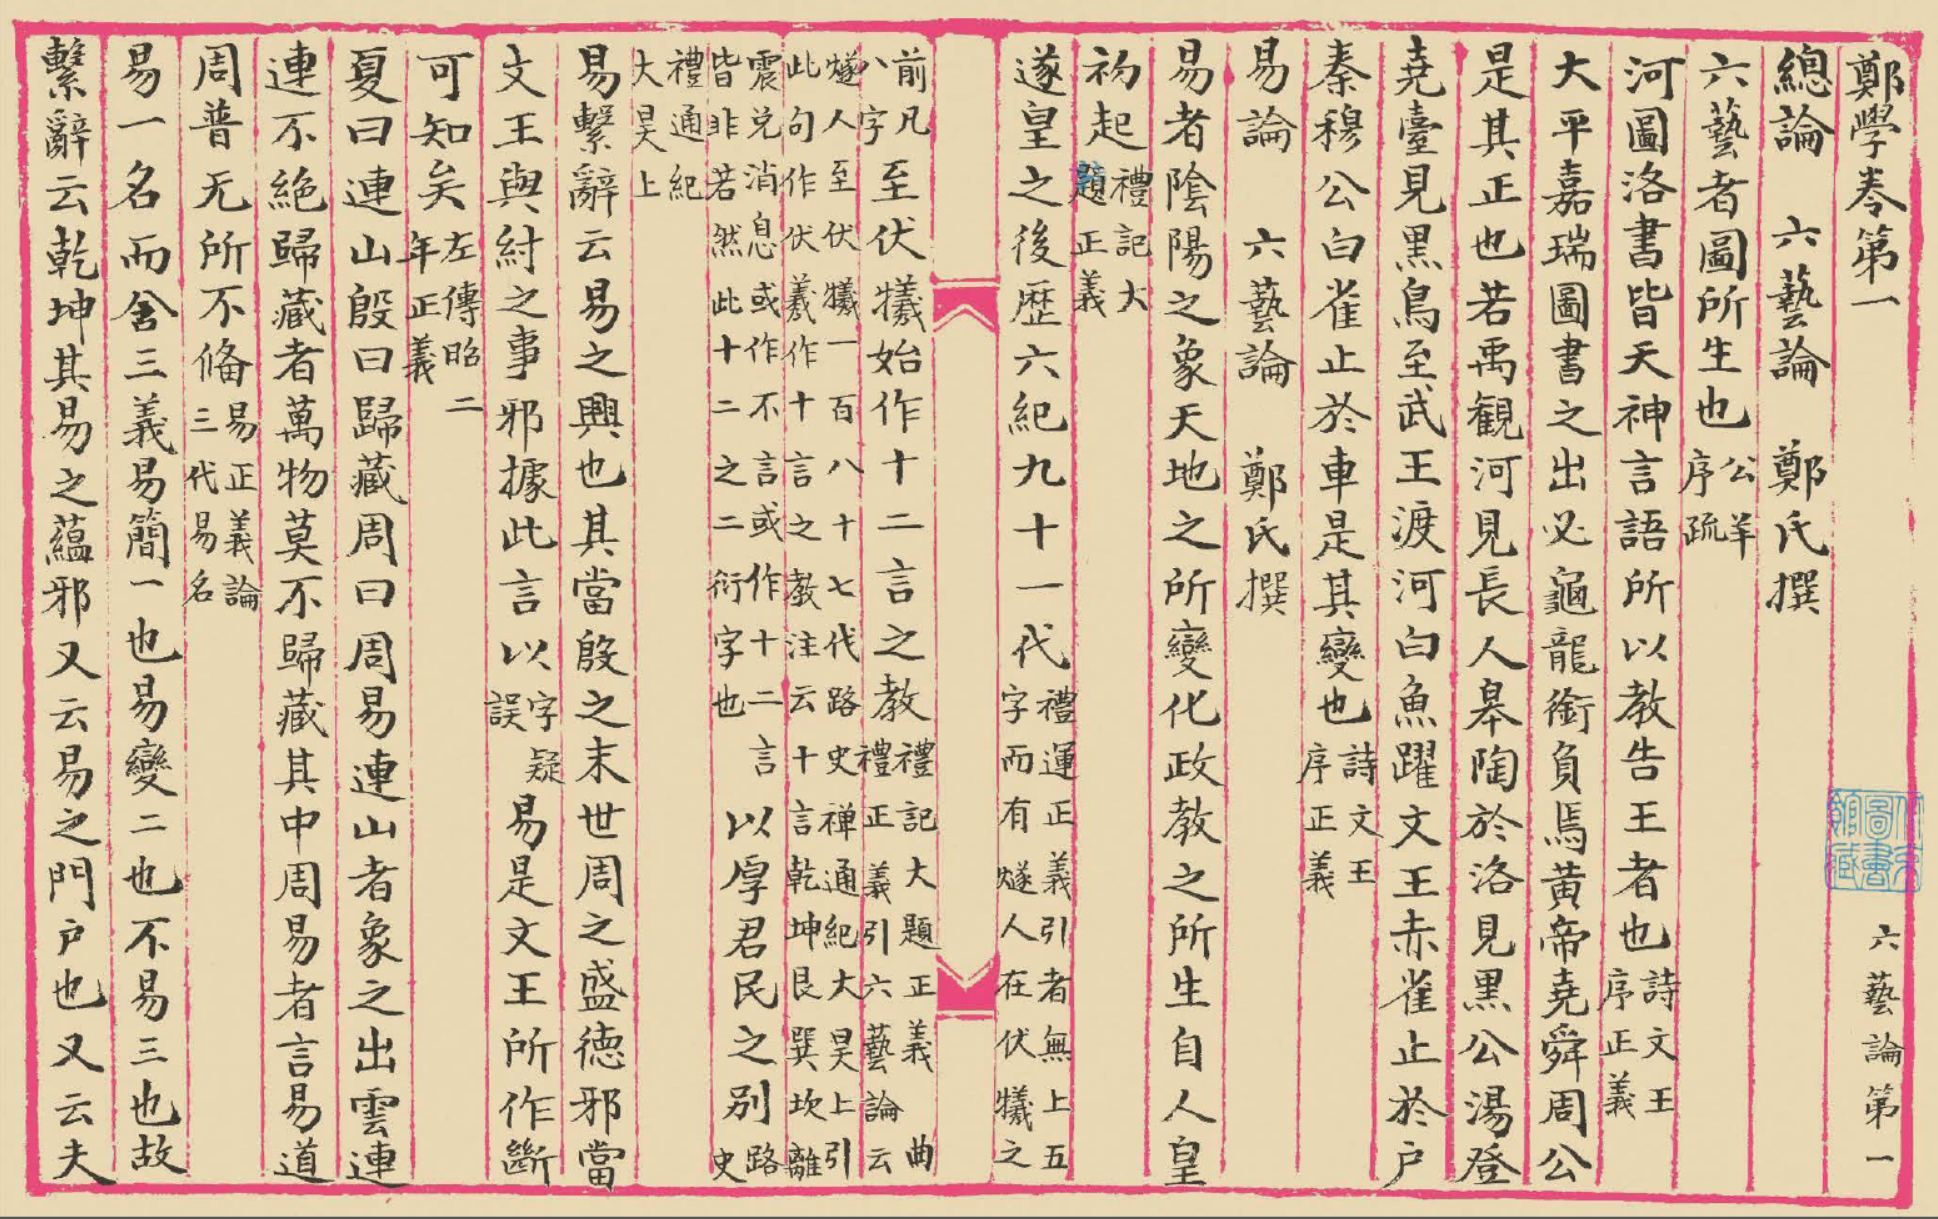 鄭學卷第一 六藝論第一
總論 六藝論 鄭氏撰
六藝者圖所生也公羊序疏
河圖洛書皆天神言語所以教告王者也詩文王序正義
大平嘉瑞圖書之出必龜龍銜負焉黃帝堯舜周公
是其正也若禹觀河見長人皋陶於洛見黑公湯登
堯臺見黑鳥至武王渡河白魚躍文王赤雀止於戶
秦穆公白雀止於車是其變也詩文王序正義
易論 六藝論 鄭氏撰
易者陰陽之象天地之所變化政教之所生自人皇
初起禮記大題正義
遂皇之後歷六紀九十一代禮運正義引者無上五字而有燧人在伏犧之
前凡八字至伏犧始作十二言之教禮記大題正義曲禮正義引六藝論云
燧人至伏犧一百八十七代路史禪通紀大昊上引此句作伏羲作十言之教注云十言乾坤艮巽坎離
震兌消息或作不言或作十二言皆非若然此十二之二衍字也以厚君民之別路史
禮通紀大昊上
易繫辭云易之興也其當殷之末世周之盛德邪當
文王與紂之事邪據此言以字疑誤易是文王所作斷
可知矣左傳昭二年正義
夏曰連山殷曰歸藏周曰周易連山者象之出雲連
連不絕歸藏者萬物莫不歸藏其中周易者言易道
周普无所不俻易正義論三代易名
易一名而含三義易簡一也易變二也不易三也故
繫辭云乾坤其易之蘊邪又云易之門戶也又云夫
圖書館藏